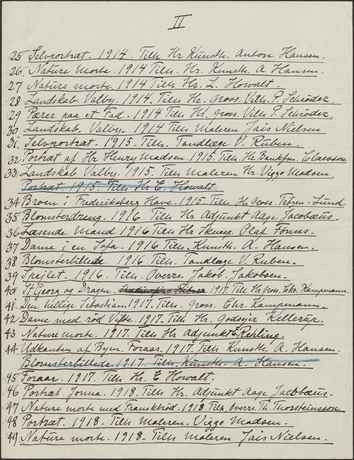 II
25 Selvportræt. 1914 Tilh. Hr. Kunsth. Anton Hansen.
26. Nature morte. 1914 Tilh. Hr. Kunsth. A. Hansen.
27 Nature morte. 1914 Tilh. Hr. L. Howalt.
28 Landskab. Valby. 1914 Tilh. Hr. Gross. Vilh. P. Schrøder.
29 Pærer paa et Fad. 1914 Tilh. Hr. gross. Vilh. P. Schrøder.
30 Landskab. Valby. 1914 Tilh. Maleren Jais Nielsen
31. Selvportræt. 1915. Tilh. Tandlæge V. Ruben.
32 Portræt af Hr. Henry Madsen 1915 Tilh. Hr. Bankfm.
33 Landskab Valby. 1915. Tilh. Maleren Hr. Viggo Madsen.
Portræt 1915. Tilh. Hr. E. Howalt.
34 Broen i Frederiksberg Have. 1915. Tilh. Hr. Gross. Tetzen-Lund
35 Blomsterdreng. 1916 Tilh. Hr. Adjunkt Aage Jacobæus.
36 Læsende Mand 1916 Tilh. Hr. Skuesp. Olaf Fønss.
37 Dame i en Sofa. 1916 Tilh. Kunsth. A. Hansen.
38 Blomsterbillede 1916 Tilh. Tandlæge V. Ruben.
39 Spejlet. 1916. Tilh. Overrs. Jakob Jakobsen.
40 St. Georg og Dragen 1917 Tilh. Hr. Gross. Chr. Kampmann
41. Den hellige Sebastian. 1917. Tilh. gross. Chr. Kampmann.
42 Dame med rød Vifte. 1917 Tilh. Hr. Godsejer Kellerup.
43 Nature morte. 1917 Tilh. Hr. adjunkt E.
44 Udkanten af Byen. Foraar. 1917 Tilh. Kunsth. A. Hansen.
Blomsterbillede. 1917. Tilh. Kunsth. A. Hansen.
45 Foraar. 1917 Tilh. Hr. E Howalt.
46 Portræt Gonna. 1918 Tilh. Hr. Adjunkt Aage Jacobæus.
47 Nature morte med Franskbrød. 1918 Tilh. Overrs. Th. Thorsteinsson
48 Portræt. 1918. Tilh. Maleren. Viggo Madsen.
49 Nature morte. 1918. Tilh. Maleren Jais Nielsen.